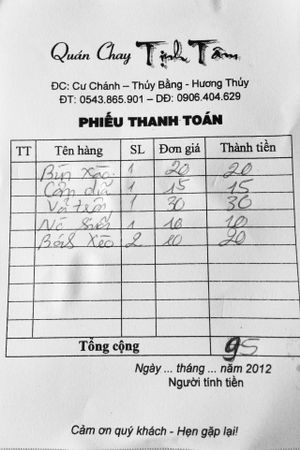 Quán Chay Tịnh Tâm
ĐC: Cư Chánh – Thủy Bằng - Hương Thủy
ĐT: 0543.865.901 – DĐ: 0906.404.629
PHIẾU THANH TOÁN
TT Tên hàng SL Đơn giá Thành tiền
Bún Xào 1 20 20
Cơm dĩa 1 15 15
Vả trộn 1 30 30
1 10 10
Bánh Xèo 2 10 20
Tổng cộng 95
Ngày ... tháng ... năm 2012
Người tính tiền
Cảm ơn quý khách - Hẹn gặp lại!